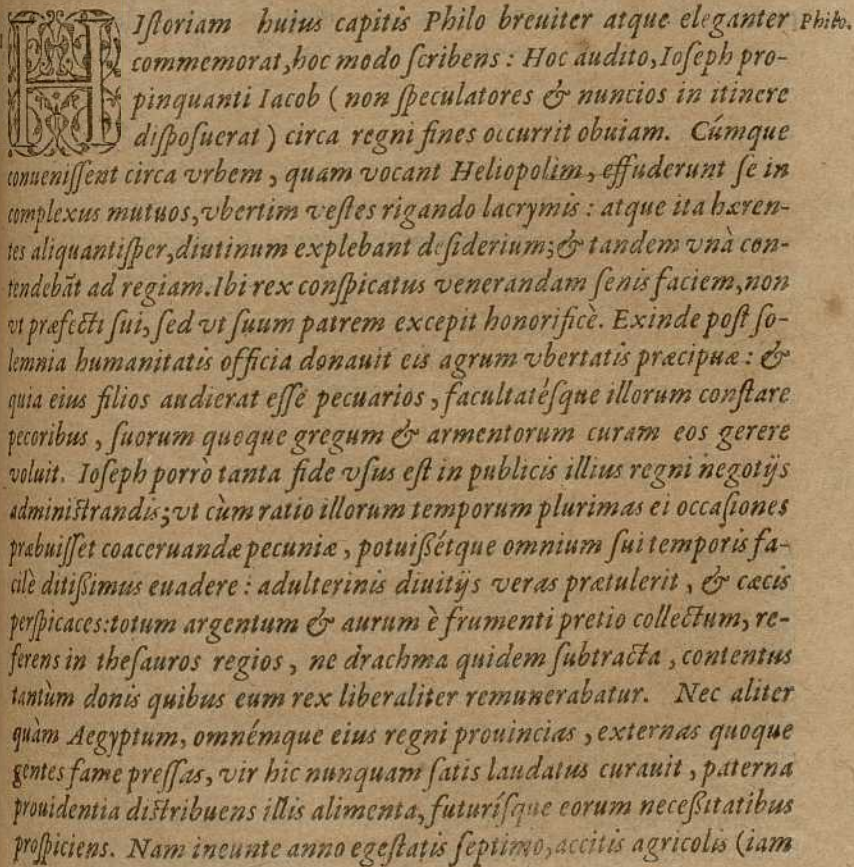 HIſtoriam huius capitis Philo breuiter atque eleganter Philo.
commemorat, hoc modo ſcribens : Hoc audito, Ioſeph pro-
pinquanti Iacob ( non ſpeculatores & nuncios in itinere
diſpoſuerat ) circa regni fines occurrit obuiam. Cúmque
conueniſſent circa vrbem, quam vocant Heliopolim, effuderunt ſe in
complexus mutuos, vbertim veſtes rigando lacrymis : atque ita hæren-
tes aliquantiſper, diutinum explebant deſiderium; & tandem vnà con-
tendebāt ad regiam. Ibi rex conſpicatus venerandam ſenis faciem, non
vt præfecti ſui, ſed vt ſuum patrem excepit honorificè. Exinde poſt ſo-
lemnia humanitatis officia donauit eis agrum vbertatis præcipuæ : &
quia eius filios audierat eſſe pecuarios, facultatéſque illorum conſtare
pecoribus, ſuorum quoque gregum & armentorum curam eos gerere
voluit. Ioſeph porrò tanta fide vſus eſt in publicis illius regni negotijs
adminiſtrandis; vt cùm ratio illorum temporum plurimas ei occaſiones
præbuiſſet coaceruandæ pecuniæ, potuißétque omnium ſui temporis fa-
cilè ditißimus euadere : adulterinis diuitijs veras prætulerit, & cæcis
perſpicaces: totum argentum & aurum è frumenti pretio collectum, re-
ferens in theſauros regios, ne drachma quidem ſubtracta, contentus
tantùm donis quibus eum rex liberaliter remunerabatur. Nec aliter
quàm Aegyptum, omnémque eius regni prouincias, externas quoque
gentes fame preſſas, vir hic nunquam ſatis laudatus curauit, paterna
prouidentia diſtribuens illis alimenta, futuríſque eorum neceßitatibus
proſpiciens. Nam ineunte anno egeſtatis ſeptimo, accitis agricolis (iam